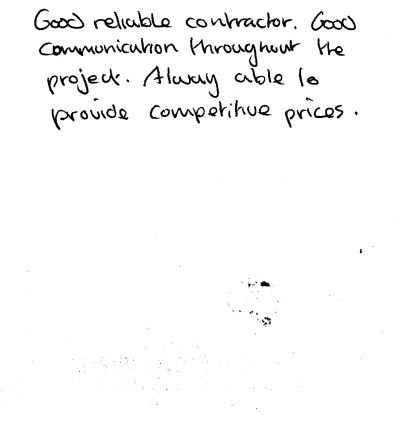 Good reliable contractor. Good
communication throughout the
project. Alway able to
provide competitive prices.